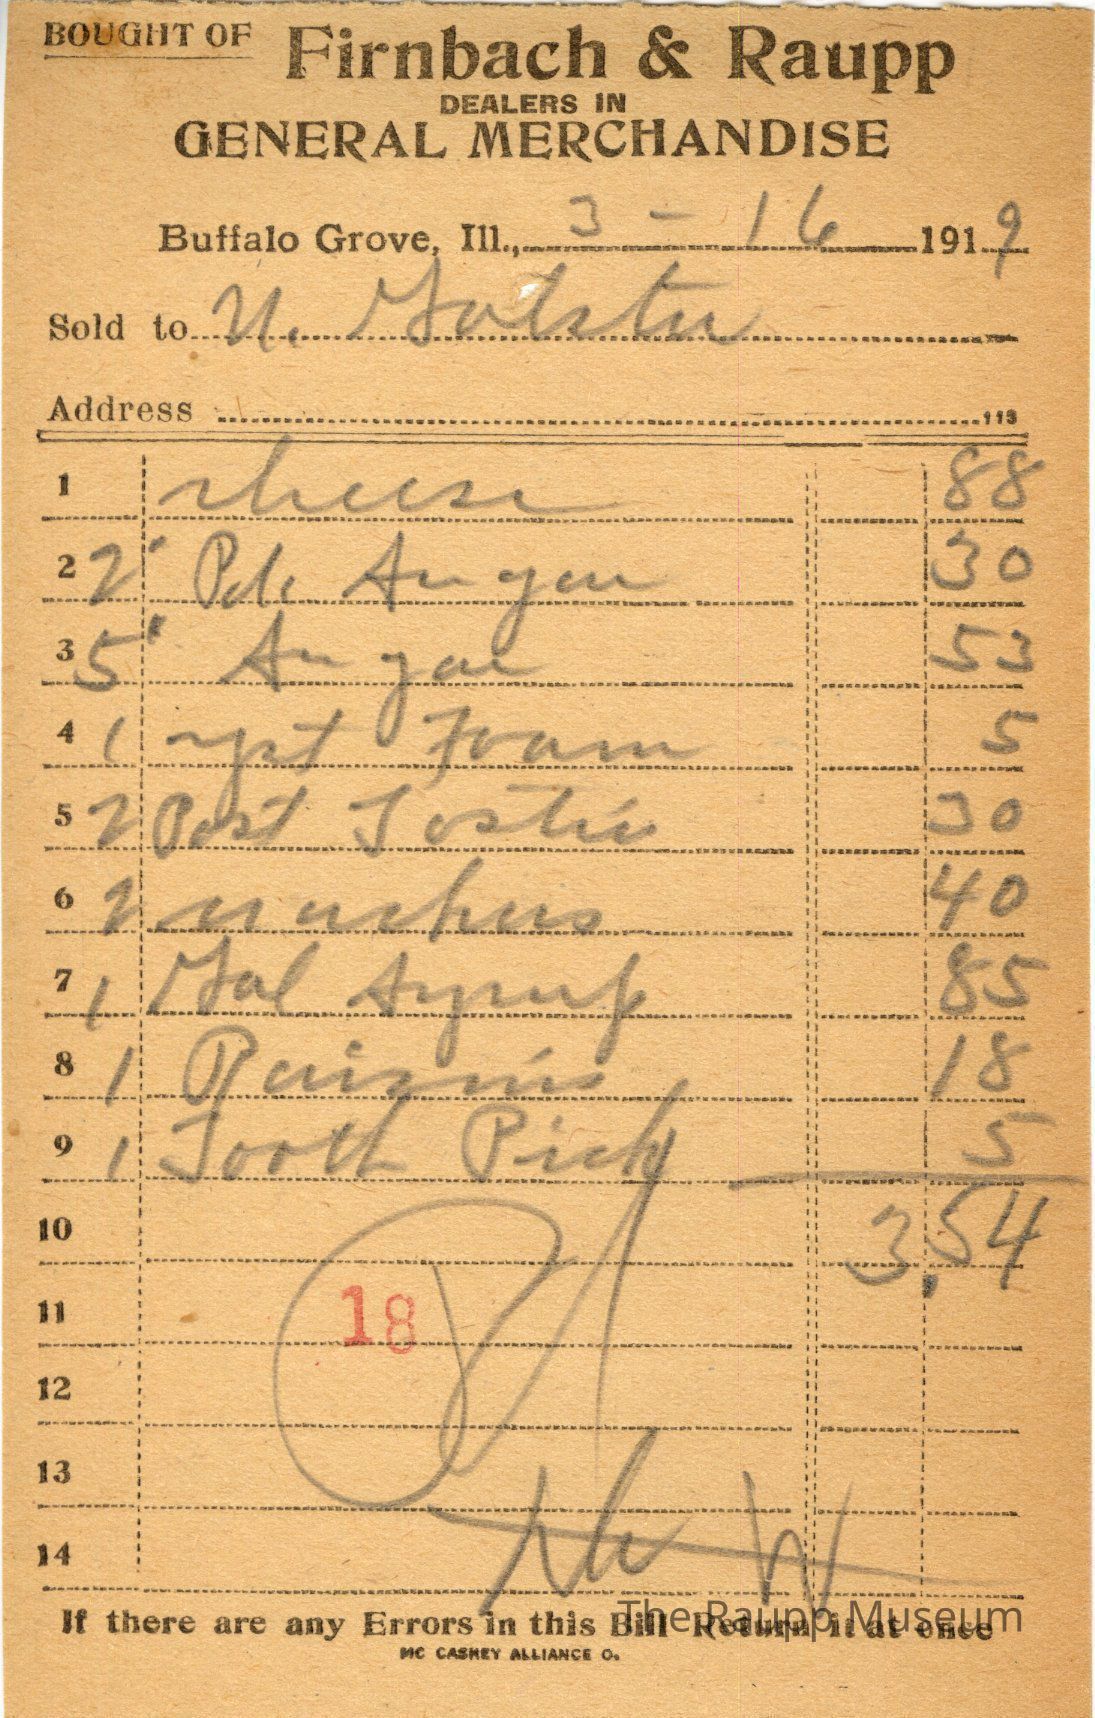 BOUGHT OF Firnbach & Raupp
DEALERS IN
GENERAL MERCHANDISE
Buffalo Grove, Ill., 3 - 16 1919
Sold to N.
Address 113
1 cheese 88
2 2 Pdr Sugar 30
3 5 Sugar 53
4 1 yst Foam 5
5 2 Post Tostie 30
6 2 crackers 40
7 1 Gal Syrup 85
8 1 Raisins 18
9 1 Tooth Pick 5
10 3,54
11 18
12
13
14
If there are any Errors in this Bill Return it at once
The Raupp Museum
MC CASKEY ALLIANCE O.